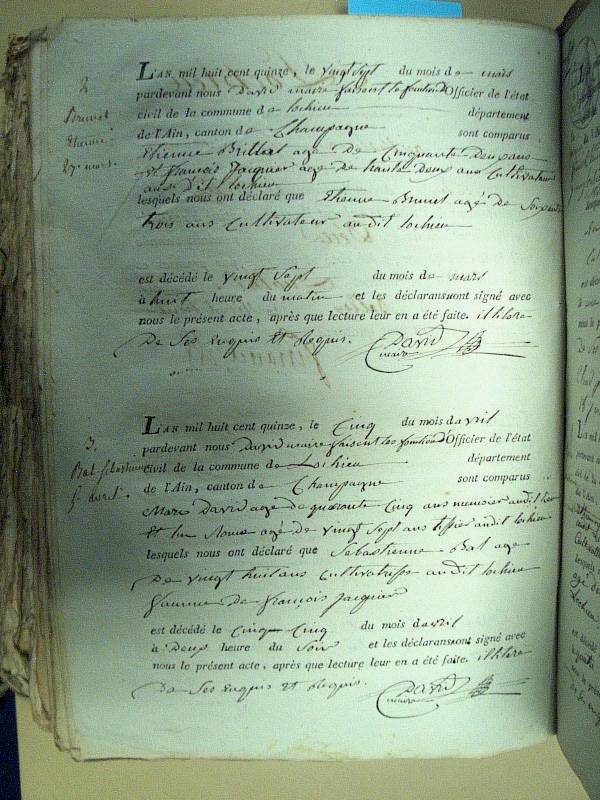 2
Brunet
Etienne
27 mars.
L'AN mil huit cent quinze, le vingt Sept du mois de mars
pardevant nous David maire faisent les fonctions Officier de l'état
civil de la commune de lochieu département
de l'Ain, canton de Champagne sont comparus
Etienne Brillat agé De Cinquante Deux ans
et francois Jacquier age de trante Deux ans Cultivateurs
au Dit lochieu
lesquels nous ont déclaré que Etienne Brunet agé de Soixante
trois ans Cultivateur au dit lochieu
est décédé le vingt Sept du mois de mars
à huit heure du matin et les déclarans ont signé avec
nous le présent acte, après que lecture leur en a été faite.
De Ses enquis et Requis. David
maire
3.
Bal Sebastienne
5 avril
L'AN mil huit cent quinze, le Cinq du mois d'avril
pardevant nous David maire faisent les fonctions Officier de l'état
civil de la commune de Lochieu département
de l'Ain, canton de Champagne sont comparus
Marc David age de quarante Cinq ans meunier au dit lieu
et agé de vingt Sept ans tissier au dit lochieu
lesquels nous ont déclaré que Sebastienne Bal age
De vingt huit ans Cultivatrisse au dit lochieu
faumme de françois Jacquier
est décédé le Cinq du mois d'avril
à Deux heure du Soir et les déclarans ont signé avec
nous le présent acte, après que lecture leur en a été faite.
De Ses enquis et Requis. David
maire